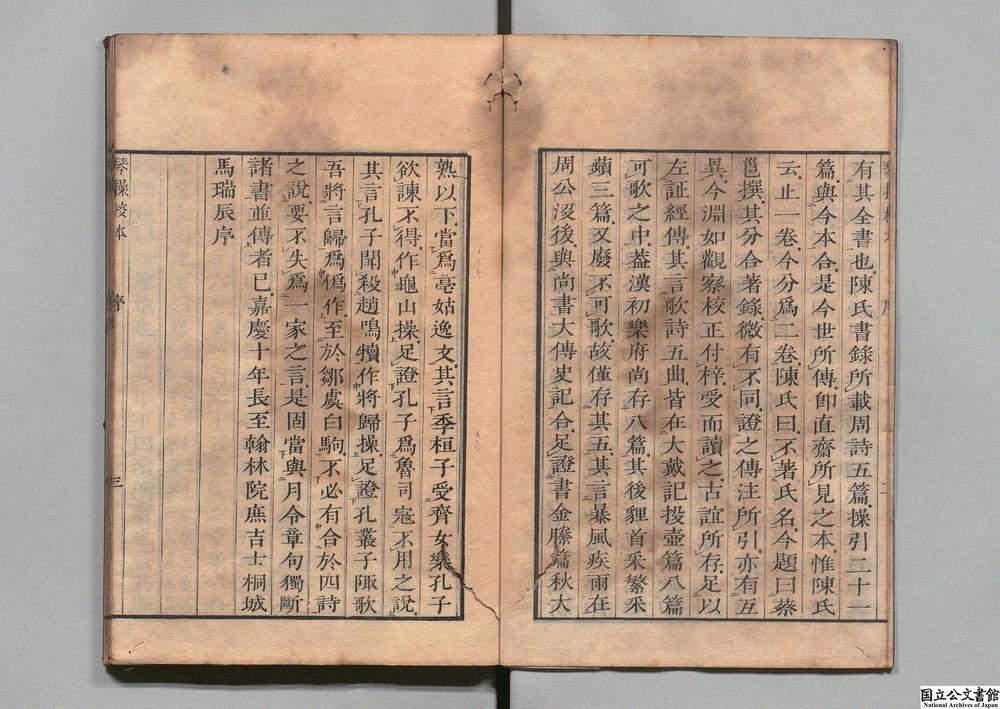 有其全書也陳氏書錄所載周詩五篇操引二十一
篇與今本合是今世所傳卽直齋所見之本惟陳氏
云止一卷今分爲二卷陳氏曰不著氏名今題曰蔡
邕撰其分合著錄微有不同證之傳注所引亦有互
異今淵如觀察校正付梓受而讀之古誼所存足以
左証經傳其言歌詩五曲皆在大戴記投壺篇八篇
可歌之中葢漢初樂府尚存八篇其後貍首采繁采
蘋三篇又廢不可歌故僅存其五其言暴風疾雨在
周公沒後與尚書大傳史記合足證書金縢篇秋大
熟以下當爲亳姑逸文其言季桓子受齊女樂孔子
欲諫不得作龜山操足證孔子爲魯司寇不用之說
其言孔子聞殺趙鳴犢作將歸操足證孔叢子陬歌
吾將言歸爲僞作至於鄒虞白駒不必有合於四詩
之說要不失爲一家之言是固當與月令章句獨斷
諸書並傳者已嘉慶十年長至翰林院庶吉士桐城
馬瑞辰序
琴操校本 序 三
国立公文書館
National Archives of Japan